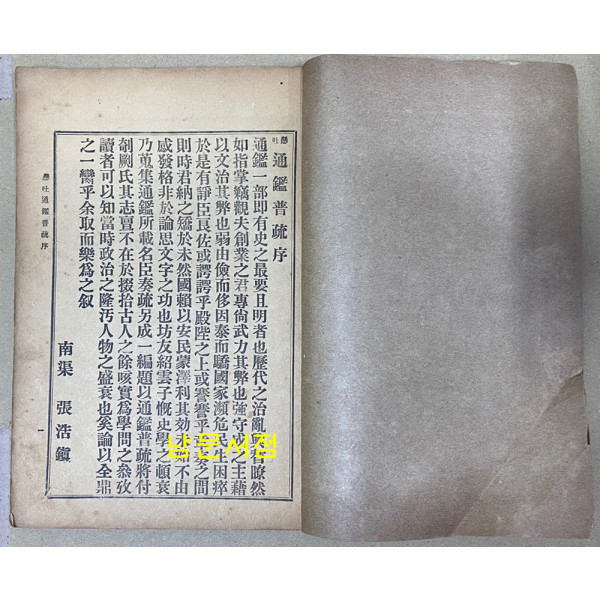 懸吐通鑑普疏序
通鑑一部即有史之最要且明者也歷代之治亂興替瞭然
如指掌竊觀夫創業之君專尙武力其弊也強守成之主藉
以文治其弊也弱由儉而侈因泰而驕國家濒危民生困瘁
於是有諍臣良佐或諤諤乎殿陛之上或謇謇乎章奏之間
則時君納之矯於未然國賴以安民蒙澤利其効未始不由
感發格非於論思文字之功也坊友紹雲子慨史學之頓衰
乃蒐集通鑑所載名臣奏疏另成一編題以通鑑普疏將付
剞劂氏其志亶不在於掇拾古人之餘咳實爲學問之叅攷
讀者可以知當時政治之隆汚人物之盛衰也矣論以全鼎
之一臠乎余取而樂爲之叙
南渠 張浩鎭
懸吐通鑑普疏序
一
남문서점